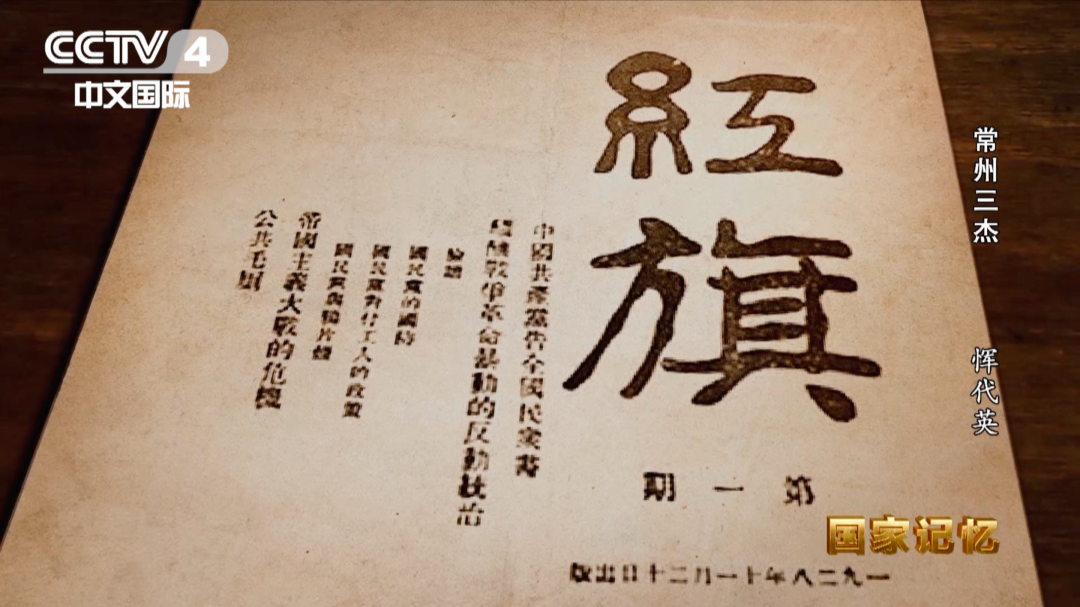 CCTV 4
中文国际
常州三杰 恽代英
紅旗
中國共產黨告全國民衆書
釀戰爭革命暴動的反動統治
國民黨的國防
國民黨對付工人的政策
國民黨與鴉片煙
帝國主義大戰的危機
公共毛廁
第一期
国家记忆
一九二八年十一月二十日出版